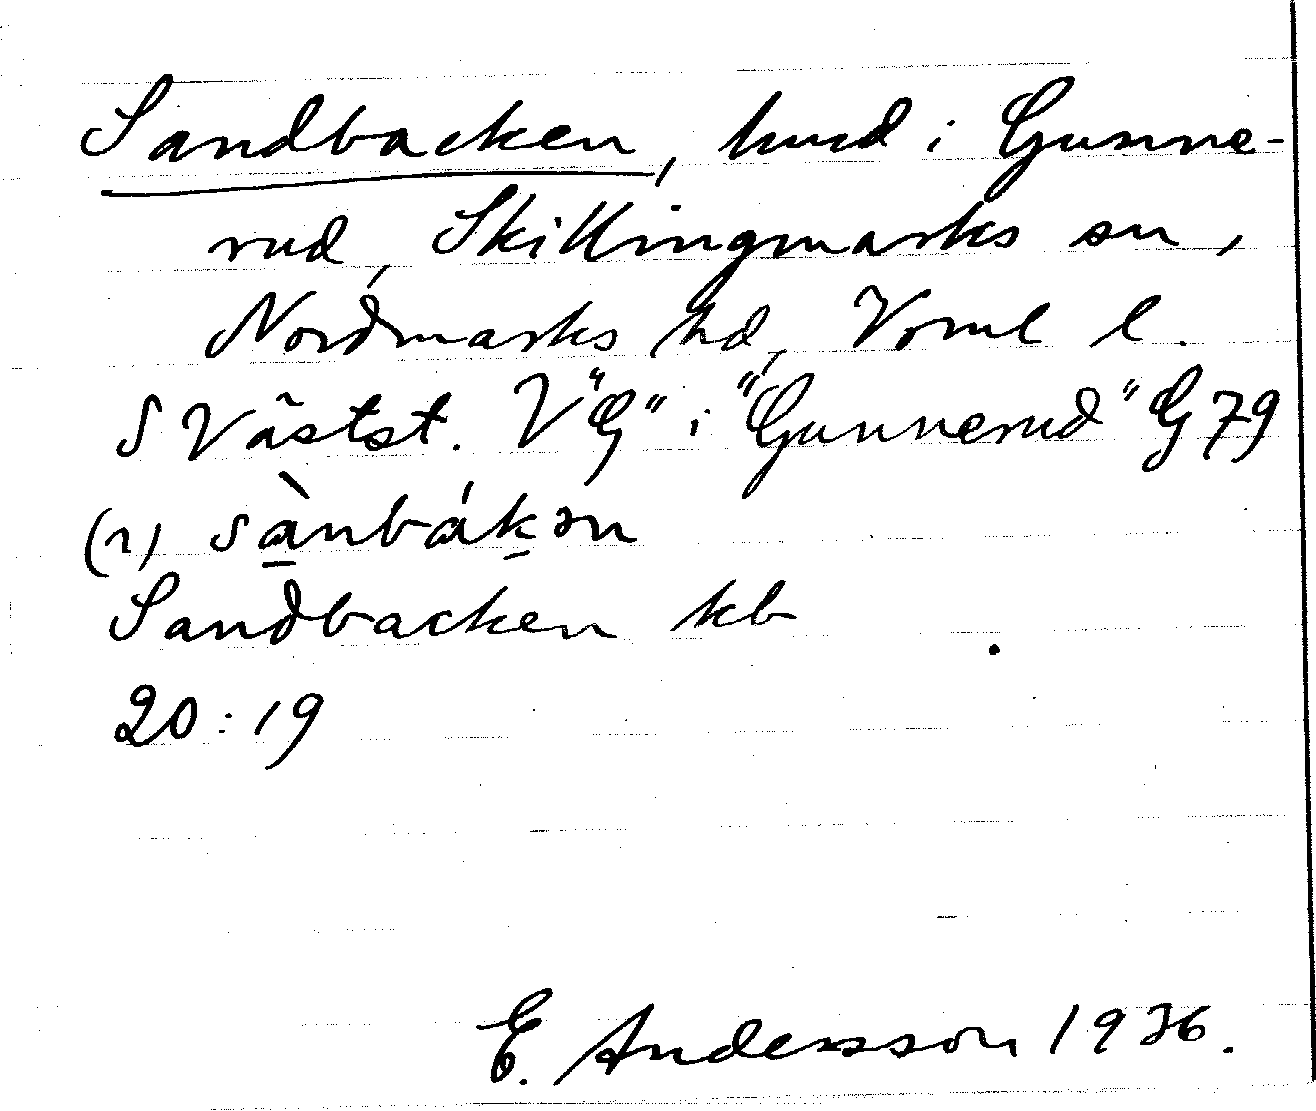 Sandbacken, hmd i Gunne-
rud, Skillingmarks sn,
Nordmarks hd, Vrml l.
S Västst. V "G" i "Gunnerud" G 79
(1) sànbákən
Sandbacken kb
20:19
E. Andersson 1936.